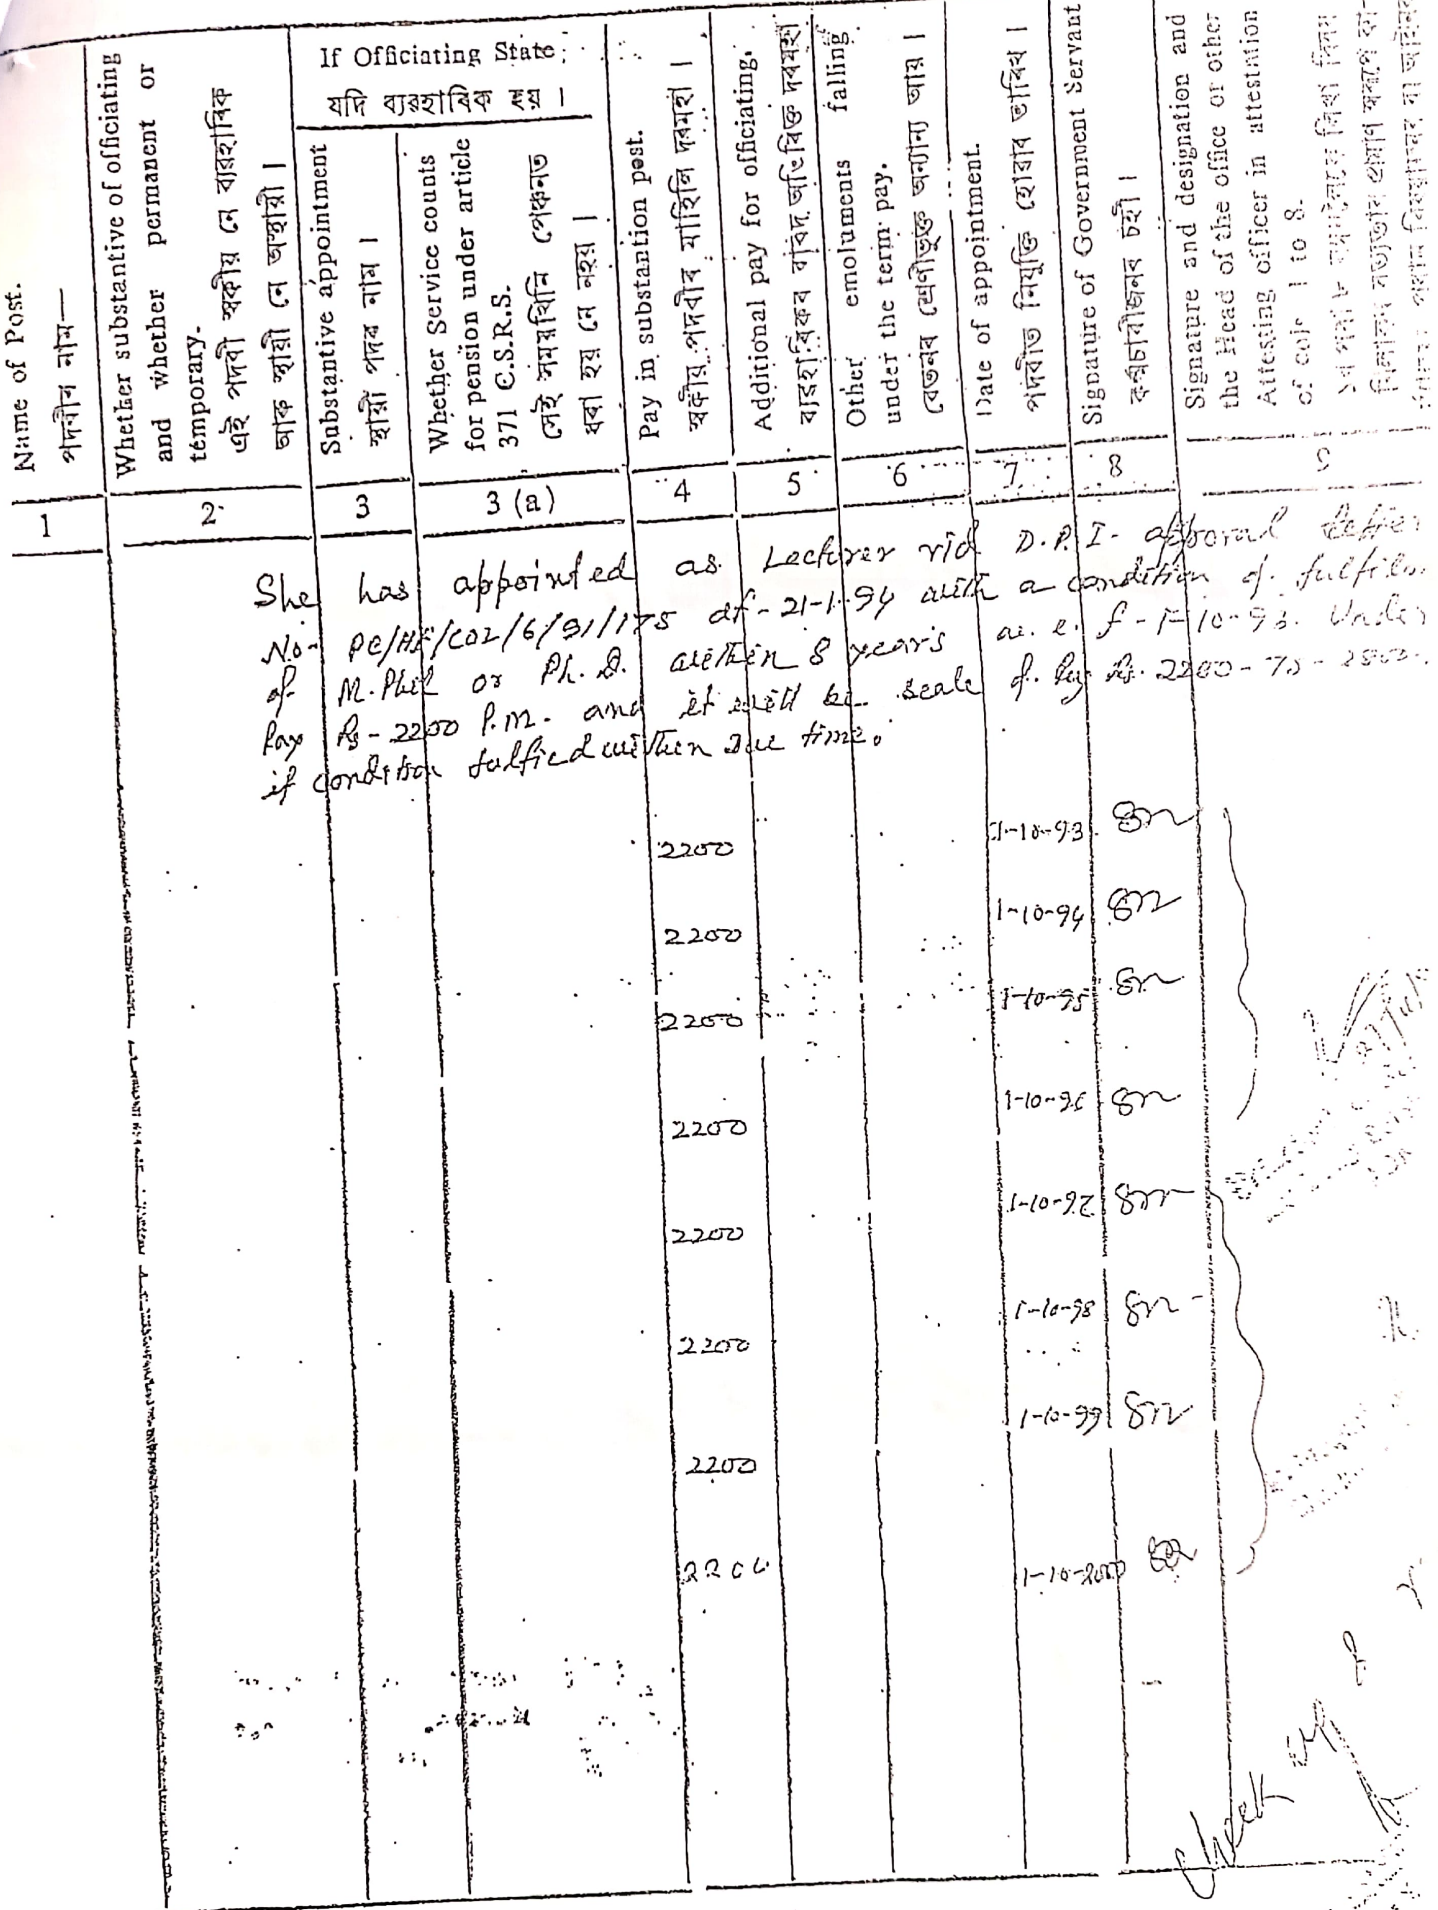 Name of Post.
পদবীৰ নাম—
Whether substantive of officiating
and whether permanant or
temporary.
এই পদবী স্বকীয় নে ব্যৱহাৰিক
আৰু স্থায়ী নে অস্থায়ী।
If Officiating State;
যদি ব্যৱহাৰিক হয়।
Substantive appointment
স্থায়ী পদৰ নাম।
Whether Service counts
for pension under article
371 C.S.R.S.
সেই সময়খিনি পেঞ্চনত
ধৰা হয় নে নহয়।
Pay in substantion post.
স্বকীয় পদবীৰ মাহিলি দৰমহা।
Additional pay for officiating.
ব্যৱহাৰিকৰ বাবদ অতিৰিক্ত দৰমহা
Other emoluments falling
under the term pay.
বেতনৰ শ্ৰেণীভুক্ত অন্যান্য আয়।
Date of appointment.
পদবীত নিযুক্তি হোৱাৰ তাৰিখ।
Signature of Government Servant
কৰ্মচাৰীজনৰ চহী।
Signature and designation and
the Head of the office or other
Attesting officer in attestation
of cols 1 to 8.
1 2 3 3 (a) 4 5 6 7 8 9
She has appointed as Lecturer vid D.P.I. approval letter
No- PC/HE/COL/6/91/175 dt- 21-1-94 with a condition of fulfilm
of M.Phil or Ph.D. within 8 years w.e.f- 1-10-93. Under
Pay Rs- 2200 P.M. and it will be scale of Pay Rs. 2200-75-2800
if condition fulfied within due time.
2200 1-10-93
2200 1-10-94
2200 1-10-95
2200 1-10-96
2200 1-10-97
2200 1-10-98
2200 1-10-99
2200 1-10-2000
Check